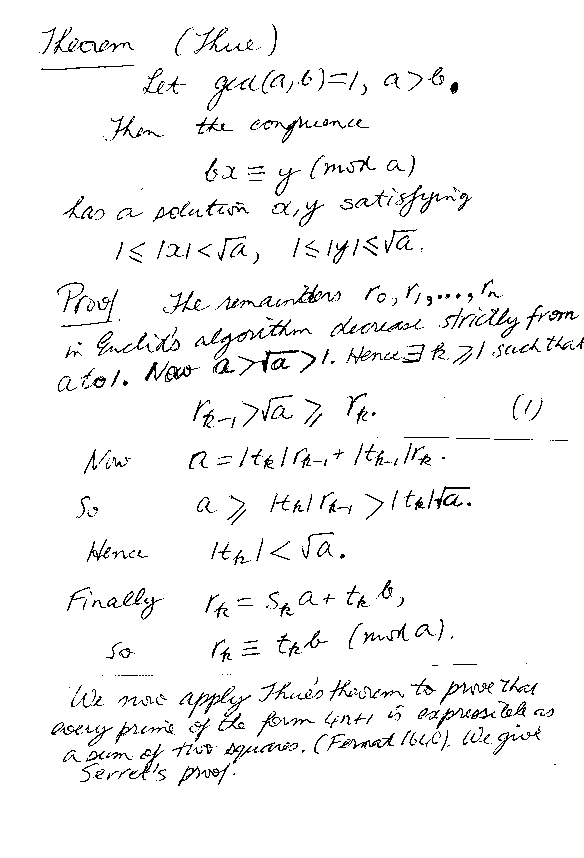 Theorem (Thue)
Let gcd(a,b)=1, a>b.
Then the congruence
bx ≡ y (mod a)
has a solution x,y satisfying
1 ≤ |x| < √a, 1 ≤ |y| ≤ √a.
Proof The remainders r₀, r₁, ..., rₙ
in Euclid's algorithm decrease strictly from
a to 1. Now a > √a > 1. Hence ∃ k ≥ 1 such that
rₖ₋₁ > √a ≥ rₖ. (1)
Now a = |tₖ|rₖ₋₁ + |tₖ₋₁|rₖ.
So a ≥ |tₖ|rₖ₋₁ > |tₖ|√a.
Hence |tₖ| < √a.
Finally rₖ = sₖa + tₖb,
So rₖ ≡ tₖb (mod a).
We now apply Thue's theorem to prove that
every prime of the form 4n+1 is expressible as
a sum of two squares. (Fermat 1640). We give
Serret's proof.